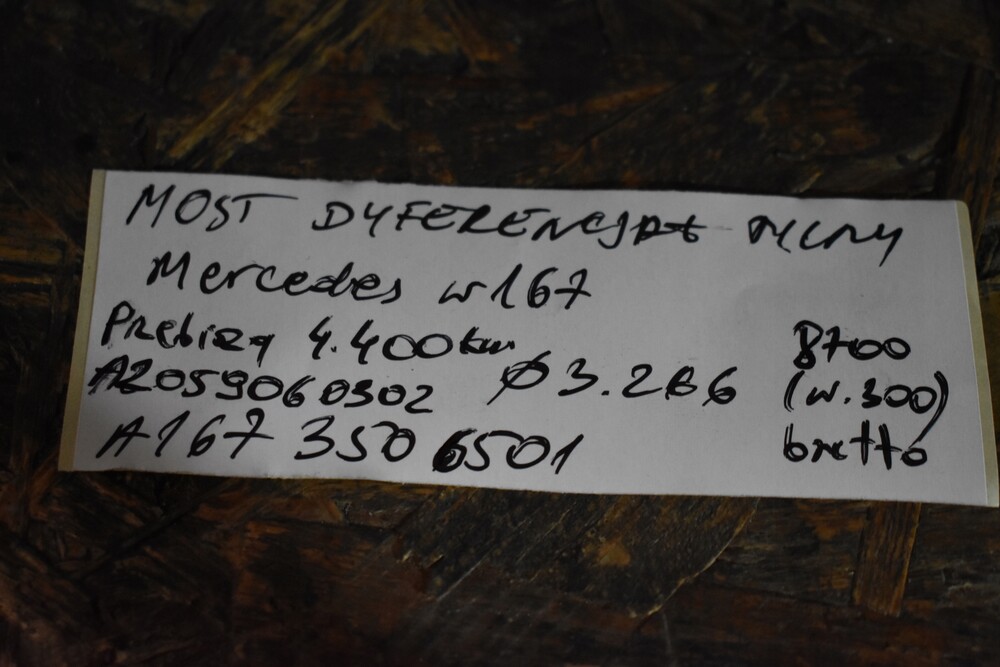 MOST DYFERENCJAŁ TYLNY
Mercedes w167
Przebieg 4.400km
8700
A2059060302 Ø3.266 (w.300)
A167 350 6501 brutto